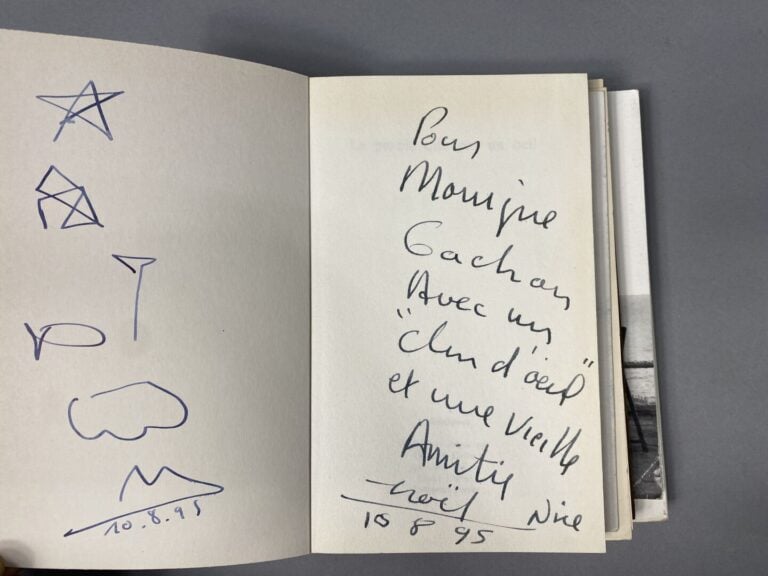 10.8.95
Pour
Monique
Gachon
Avec un
"clin d'oeil"
et une vieille
Amitié
Noël Nice
10 8 95